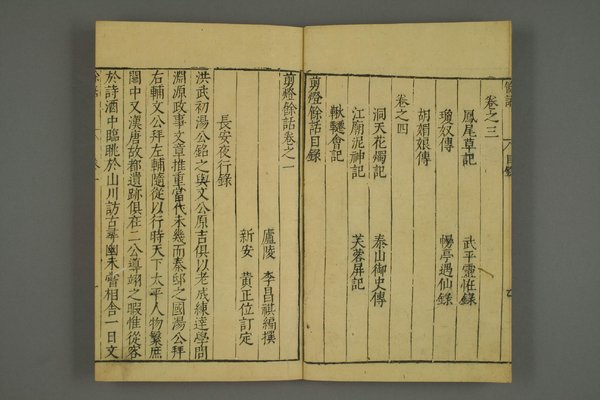 卷之三
鳳尾草記 武平靈怪錄
瓊奴傳 幔亭遇仙錄
胡媚娘傳
卷之四
洞天花燭記 泰山御史傳
江廟泥神記 芙蓉屏記
鞦韆會記
剪燈餘話目錄
剪燈餘話卷之一
廬陵 李昌祺編撰
新安 黃正位訂定
長安夜行錄
洪武初湯公銘之與文公原吉俱以老成練達學問
淵源政事文章推重當代未幾而秦邸之國湯公拜
右輔文公拜左輔隨從以行時天下太平人物繁庶
關中又漢唐故都遺跡俱在二公導翊之暇惟從容
於詩酒中臨眺於山川訪古尋幽未嘗相舍一日文